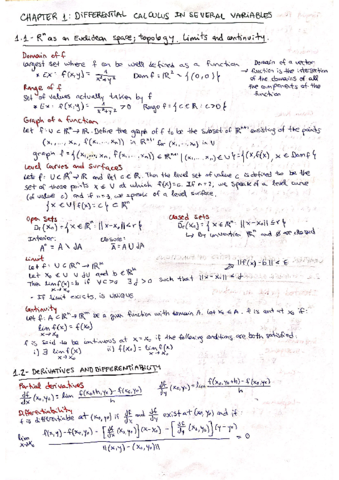 CHAPTER 1: DIFFERENTIAL CALCULUS IN SEVERAL VARIABLES
1.1 - Rⁿ as an Euclidean space; Topology. Limits and continuity.
Domain of f
largest set where f can be well defined as a function
* Ex: f(x,y) = 1/(x²+y²) Dom f = R² \ {(0,0)}
Domain of a vector function is the intersection of the domains of all the components of the function
Range of f
Set of values actually taken by f
* Ex: f(x,y) = 1/(x²+y²) > 0 Range f = {c ∈ R : c > 0}
Graph of a function
Let f: U ⊂ Rⁿ → R. Define the graph of f to be the subset of Rⁿ⁺¹ consisting of the points
(x₁, ..., xₙ, f(x₁, ..., xₙ)) in Rⁿ⁺¹ for (x₁, ..., xₙ) in U
graph f = {(x₁, ..., xₙ, f(x₁, ..., xₙ)) ∈ Rⁿ⁺¹ | (x₁, ..., xₙ) ∈ U} = {(x, f(x)), x ∈ Dom f}
Level Curves and Surfaces
Let f: U ⊂ Rⁿ → R and let c ∈ R. Then the level set of value c is defined to be the
set of those points x ∈ U at which f(x) = c. If n=2, we speak of a level curve
(of value c) and if n=3 → speak of a level surface.
{x ∈ U | f(x) = c} ⊂ Rⁿ
Open Sets
Dr(x₀) = {x ∈ Rⁿ : ||x - x₀|| < r}
Interior:
A° = A \ ∂A
Closed Sets
Dr(x₀) = {x ∈ Rⁿ : ||x - x₀|| ≤ r}
↳ By convention Rⁿ and Ø are closed
Closure:
Ā = A ∪ ∂A
Limit
Let f: U ⊂ Rⁿ → Rᵐ
Let x₀ ∈ U ∪ ∂U and b ∈ Rᵐ
Then lim f(x) = b if ∀ε > 0 ∃ δ > 0 such that ||x - x₀|| < δ ⇒ ||f(x) - b|| < ε
x→x₀
- If limit exists, is unique
Continuity
Let f: A ⊂ Rⁿ → Rᵐ be a given function with domain A. Let x₀ ∈ A. f is cont at x₀ if:
lim f(x) = f(x₀)
x→x₀
f is said to be continuous at x = x₀ if the following conditions are both satisfied:
i) ∃ lim f(x) ii) f(x₀) = lim f(x)
x→x₀ x→x₀
1.2 - DERIVATIVES AND DIFFERENTIABILITY
Partial derivatives
∂f/∂x (x₀,y₀) = lim f(x₀+h, y₀) - f(x₀,y₀) / h ∂f/∂y (x₀,y₀) = lim f(x₀, y₀+h) - f(x₀,y₀) / h
Differentiability
f is differentiable at (x₀,y₀) if ∂f/∂x and ∂f/∂y exist at (x₀,y₀) and if:
lim f(x,y) - f(x₀,y₀) - [∂f/∂x (x₀,y₀)](x - x₀) - [∂f/∂y (x₀,y₀)](y - y₀) / ||(x,y) - (x₀,y₀)|| = 0
x→x₀